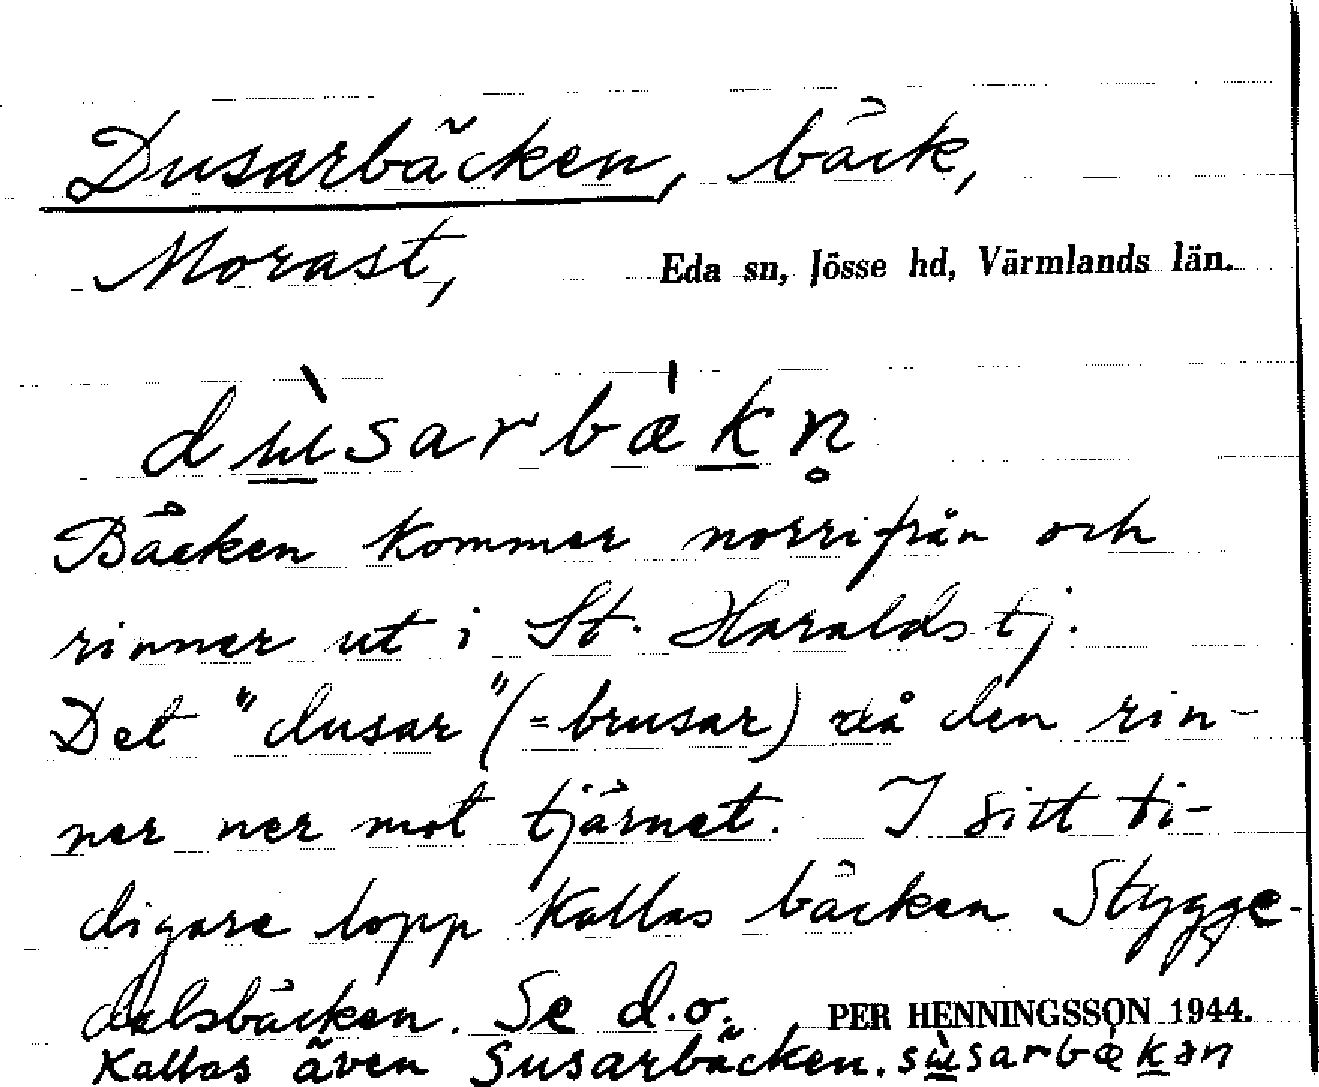 Dusarbäcken, bäck,
Morast,
Eda sn, Jösse hd, Värmlands län.
dùsarbækn̥
Bäcken kommer norrifrån och
rinner ut i St. Haraldstj.
Det "dusar" (= brusar) då den rin-
ner ner mot tjärnet. I sitt ti-
digare lopp kallas bäcken Stygge-
dalsbäcken. Se d.o.
PER HENNINGSSON 1944.
Kallas även Susarbäcken. sùsarbækən